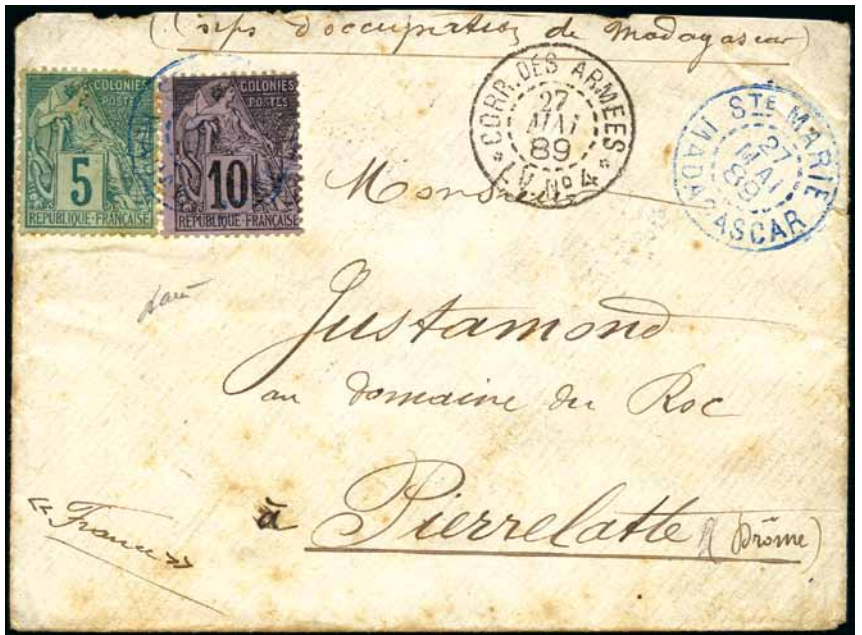 (Corps d'occupation de Madagascar)
COLONIES
POSTES
5
REPUBLIQUE FRANÇAISE
COLONIES
POSTES
10
REPUBLIQUE FRANÇAISE
CORR. DES ARMEES
27
MAI
89
LV. No 4
STE MARIE
27
MAI
89
MADAGASCAR
Monsieur
Justamond
au Domaine du Roc
à Pierrelatte (Drôme)
«France»